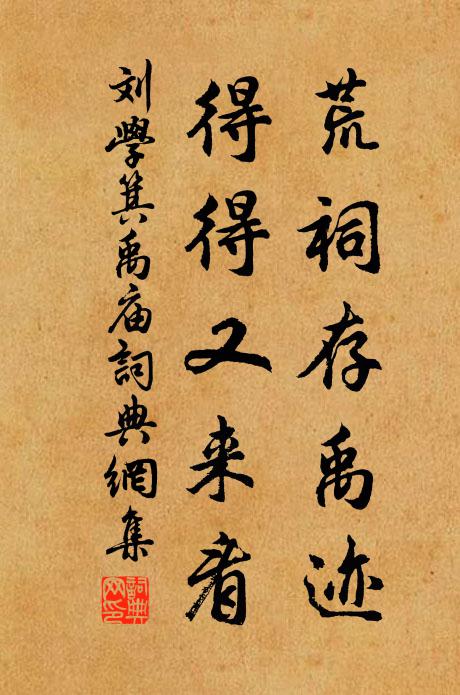 荒祠存禹迹
得得又来看
刘學箕禹庙詞典網集
詞典網印